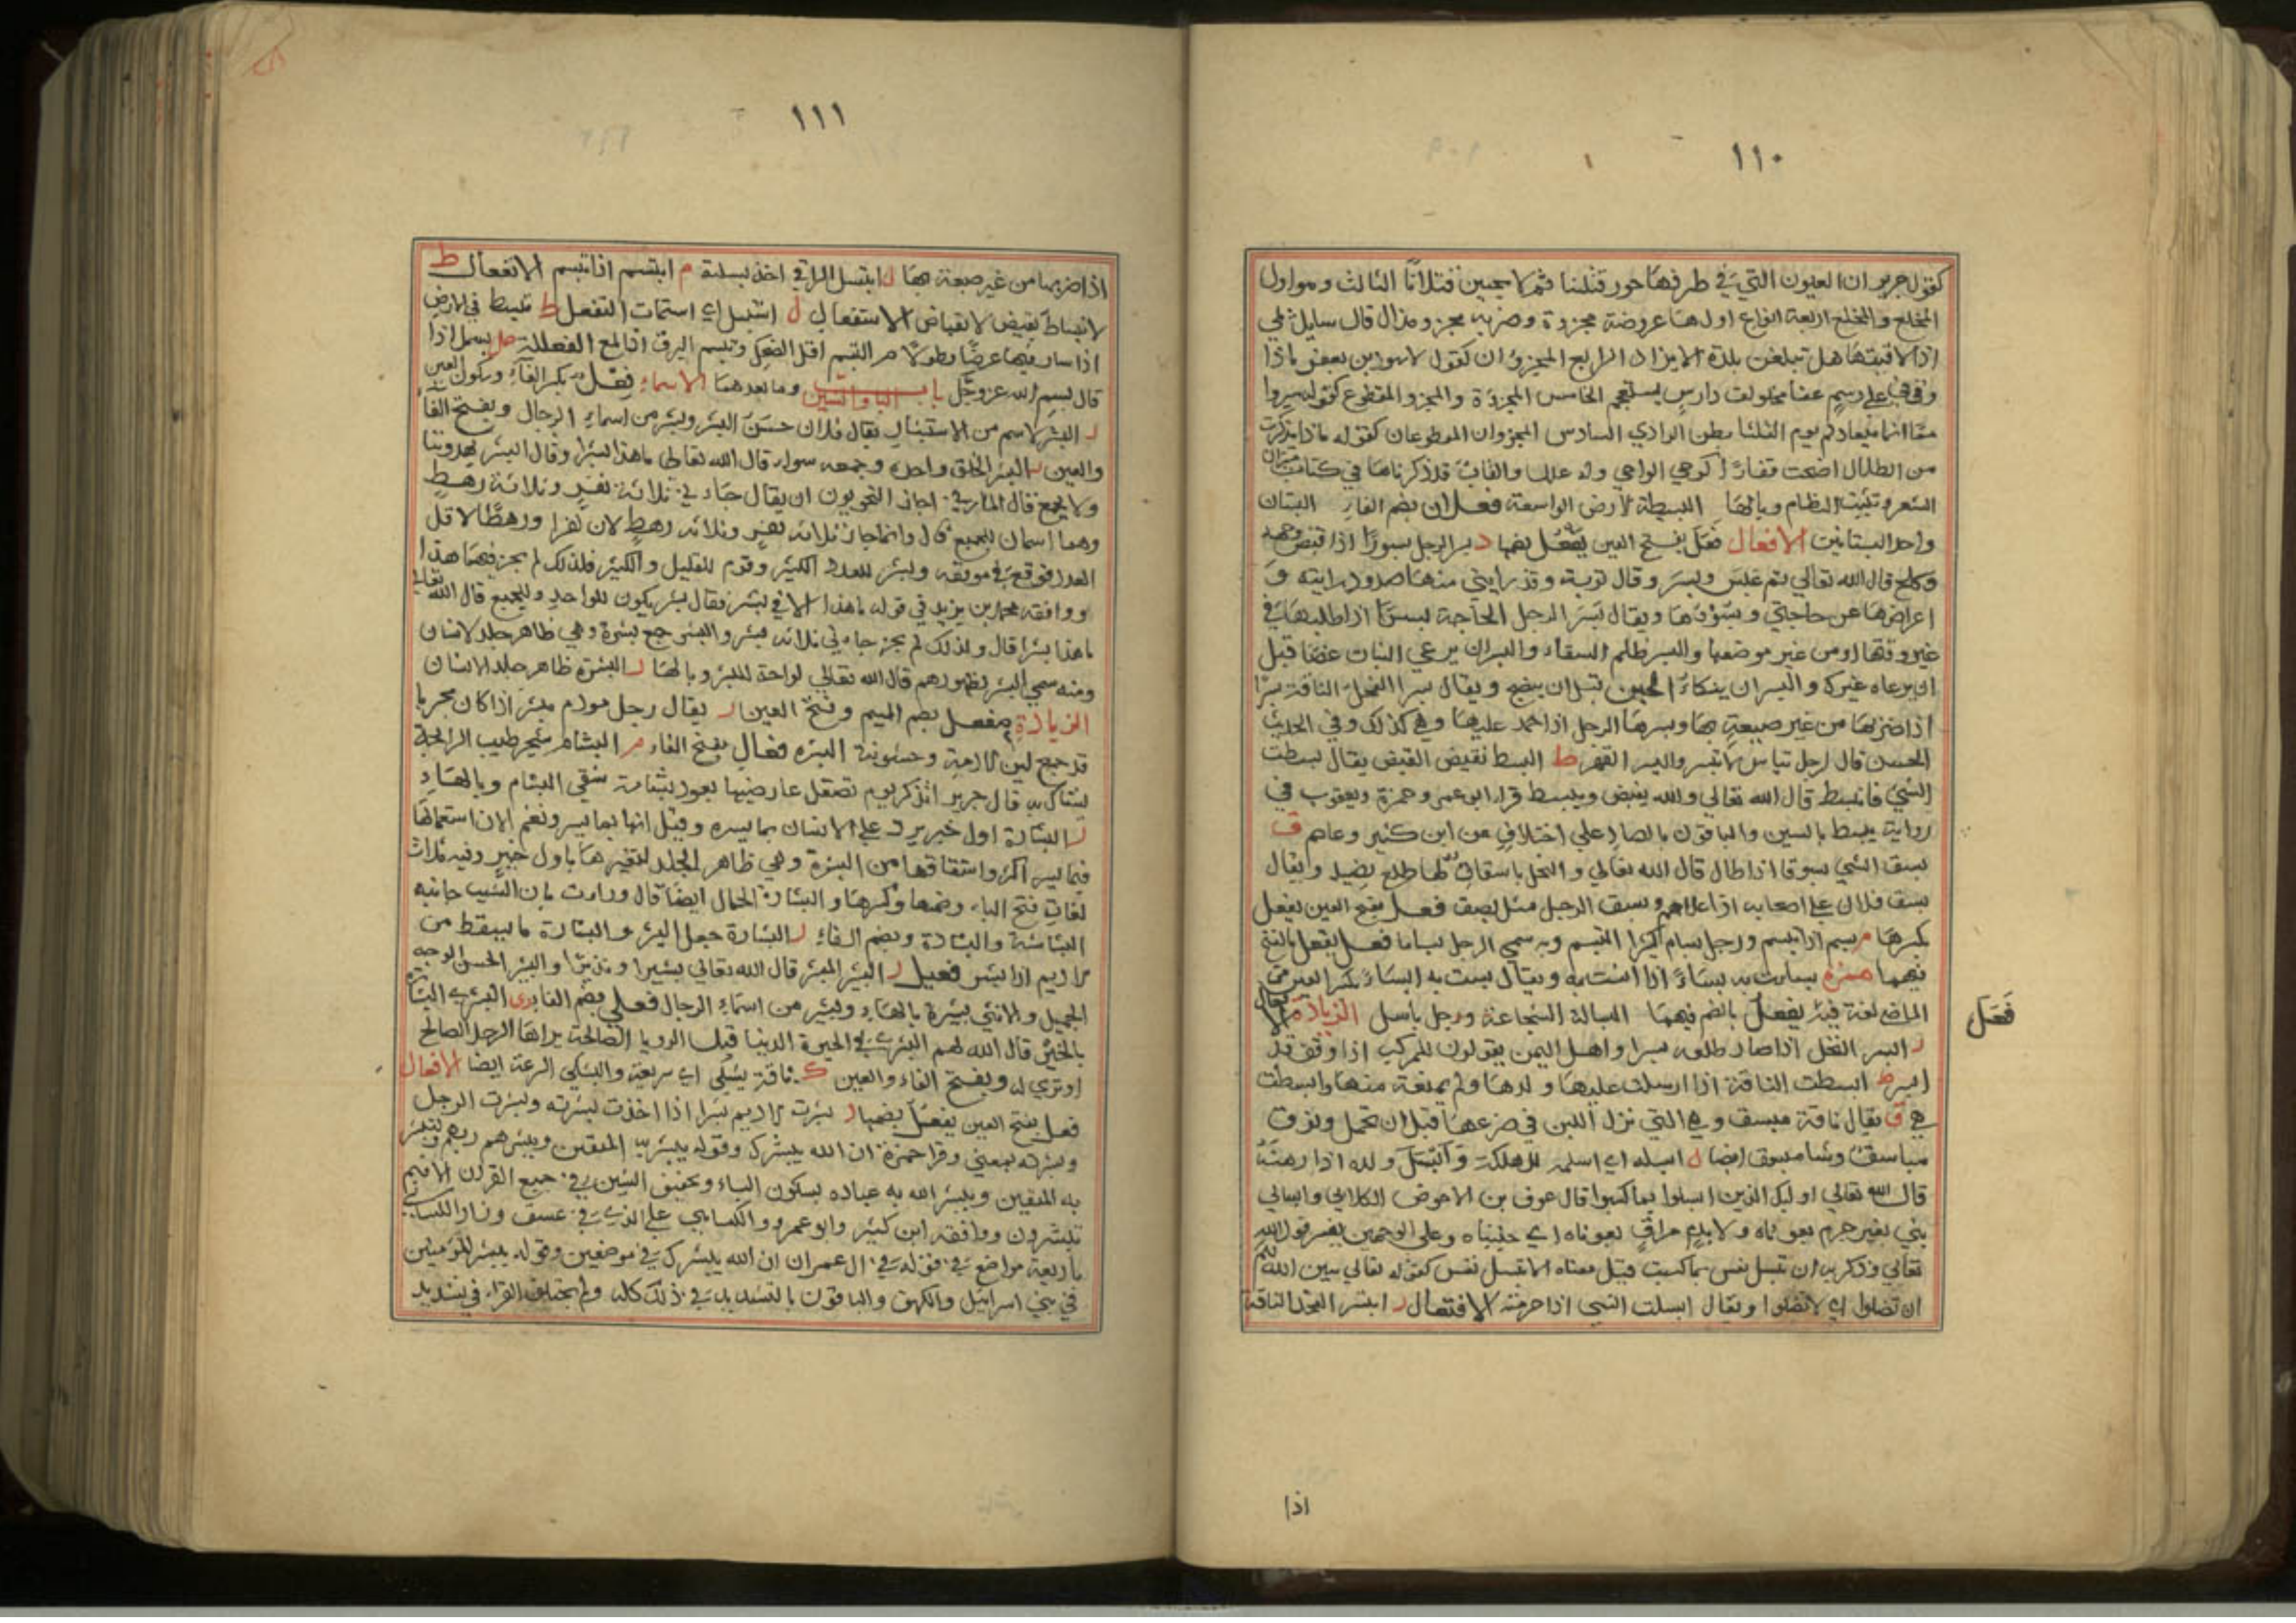 ١١٠
كقول جرير ان العيون التي في طرفها حور قتلننا ثم لا يحيين قتلانا الثالث ومواول
المخلع والمخلع اربعة انواع اولها عروضة مجزوة وضربه مجزو مذال قال سايل
اذا لاقيتها هل تبلغن بلدة الا بزاد الرابع المجزوان كقول لاسود بن يعفر ماذا
وقوفي على رسم عفا مخلولق دارس مستعجم الخامس المجزوة والمجزو المقطوع كقوله سيروا
معا انما ميعادكم يوم الثلثا بطن الوادي السادس المجزوان المقطوعان كقوله ماذا تذكرت
من الطلال اضحت قفارا كوحي الواحي وله علل والقاب قد ذكرناها في كتاب ميزان
الشعر وتثبيت النظام وبالها البسيطة الارض الواسعة فعلان بضم الفاء البستان
واحد البساتين الافعال فعل بفتح العين يفعل بضمها ر بسر الرجل بسورا اذا قبض وجهه
وكلح قال الله تعالى ثم عبس وبسر وقال توبة وقد رابني منها صدود رايته و
اعراضها عن حاجتي وبسورها ويقال بسر الرجل الحاجة بسرا اذا طلبها في
غير وقتها او من غير موضعها والبسر ظلم السقاء والبسر ان يرعى النبات غضا قبل
ان يرعاه غيرك والبسر ان ينكاء الحبن قبل ان ينضج ويقال بسر الفحل الناقة بسرا
اذا ضربها من غير ضبعة بها وبسرها الرجل اذا حمل عليها وهي كذلك وفي الحديث
الحسن قال لرجل تياس لا تبسر والبسر القهر ط البسط نقيض القبض يقال بسطت
الشي فانبسط قال الله تعالى والله يقبض ويبسط قراء ابو عمرو وحمزة ويعقوب في
رواية يبسط بالسين والباقون بالصاد على اختلاف عن ابن كثير وعاصم ق
بسق الشي بسوقا اذا طال قال الله تعالى والنخل باسقات لها طلع نضيد ويقال
بسق فلان على اصحابه اذا علاهم وبسق الرجل مثل بصق فعل بفتح العين يفعل
بكسرها م بسم اذا تبسم ورجل بسام كثير التبسم وبه سمي الرجل بساما فعل يفعل بالفتح
فيهما همزة بسات به بساء اذا انست به ويقال بست به البساء بكسر العين من
الماضي لغة فيه يفعل بالضم فيهما البسالة الشجاعة ورجل باسل الزيادة
فعل
ر ابسر النخل اذا صار طلعه بسرا واهل اليمن يقولون للمركب اذا وقف قد
ابسر ط ابسطت الناقة اذا ارسلت عليها ولدها ولم يمنعه منها وابسطت
هي ق يقال ناقة مبسق وهي التي نزل اللبن في ضرعها قبل ان تحمل ونوق
مباسق وشا مبسوق ايضا ل ابسله اي اسلمه للهلكة وابسل ولده اذا رهنه
قال الله تعالى اوليك الذين ابسلوا بما كسبوا قال عوف بن الاحوص الكلابي وابسالي
بني بغير جرم بعوناه ولا بدم مراق بعوناه اي جنيناه وعلى الوجهين يفسر قول الله
تعالى وذكر به ان تبسل نفس بما كسبت قيل معناه الا تبسل نفس كقوله تعالى يبين الله لكم
ان تضلوا اي لا تضلوا ويقال ابسلت الشي اذا حرمته الافتعال ر ابتسر الفحل الناقة
اذا
١١١
اذا ضربها من غير ضبعة بها ل ابتسل الراقي اخذ بسلته م ابتسم اذا تبسم الانفعال ط
لانبساط نقيض لانقباض الاستفعال ل استبسل اي استمات التفعل ط تبسط في الارض
اذا سار فيها عرضا وطولا م التبسم اقل الضحك وتبسم البرق اذا لمع الفعللة مل بسمل اذا
قال بسم الله عز وجل باب الباء والشين وما بعدهما الاسماء فعل بكسر الفاء وسكون العين
ر البشر لاسم من الاستبشار يقال فلان حسن البشر وبشر من اسماء الرجال وبفتح الفاء
والعين ر البشر الخلق واحده وجمعه سواء قال الله تعالى ما هذا بشرا وقال ابشر يهدوننا
ولا يجمع قال المازني اجاز النحويون ان يقال جاءني ثلاثة نفر وثلاثة رهط
وهما اسمان للجميع قال وانما جاز ثلاثة نفر وثلاثة رهط لان نفرا ورهطا لاقل
العدد فوقع في موقعه وبشر للعدد الكثير وقوم للقليل والكثير فلذلك لم يجز فيهما هذا
ووافقه محمد بن يزيد في قوله ما هذا الا في بشر فقال بشر يكون للواحد وللجميع قال الله تعالى
ما هذا بشرا قال ولذلك لم يجز جاءني ثلاثة بشر والبشر جمع بشرة وهي ظاهر جلد لانسان
ومنه سمي البشر لظهورهم قال الله تعالى لواحة للبشر وبالها ر البشرة ظاهر جلد الانسان
الزيادة مفعل بضم الميم وفتح العين ر يقال رجل مودم مبشر اذا كان مجربا
قد جمع لين لادمة وخشونة البشره فعال بفتح الفاء م البشام شجر طيب الرائحة
يستاك به قال جرير اتذكر يوم تصقل عارضيها بعود بشامة سقي البشام وبالهاء
ر البشارة اول خبر يرد على الانسان بما يسره وقيل انها بما يسر ونغم الا ان استعمالها
فيما يسر اكثر واشتقاقها من البشرة وهي ظاهر الجلد لتغيرها باول خبر وفيه ثلاث
لغات فتح الباء وضمها وكسرها والبشارة الجمال ايضا قال ورات بان الشيب جانبه
البشاشة والبشارة وبضم الفاء ر البشارة جعل البشر والبشارة ما يسقط من
لاديم اذا بشر فعيل ر البشير المبشر قال الله تعالى بشيرا ونذيرا والبشير الحسن الوجه
الجميل ولانثى بشيرة بالهاء وبشير من اسماء الرجال فعلى بضم الفاء ر البشرى البشارة
بالخير قال الله لهم البشرى في الحيوة الدنيا قيل الرويا الصالحة يراها الرجل الصالح
او ترى له وبفتح الفاء والعين ك ناقة بشكى اي سريعة والبشكى السرعة ايضا الافعال
فعل بفتح العين يفعل بضمها ر بشرت لاديم بشرا اذا اخذت بشرته وبشرت الرجل
وبشرته بمعني وقرا حمزة ان الله يبشرك وقوله يبشر به المتقين ويبشرهم ربهم وتبشر
به المتقين ويبشر الله به عباده بسكون الباء وتخفيف الشين في جميع القران الا فبم
تبشرون ووافقه ابن كثير وابو عمرو والكسايي على الذي في عسق وزاد الكسايي
باربعة مواضع في قوله في ال عمران ان الله يبشرك في موضعين وقوله يبشر المؤمنين
في بني اسرائيل والكهف والباقون بالتشديد في ذلك كله ولم يختلف القراء في تشديد